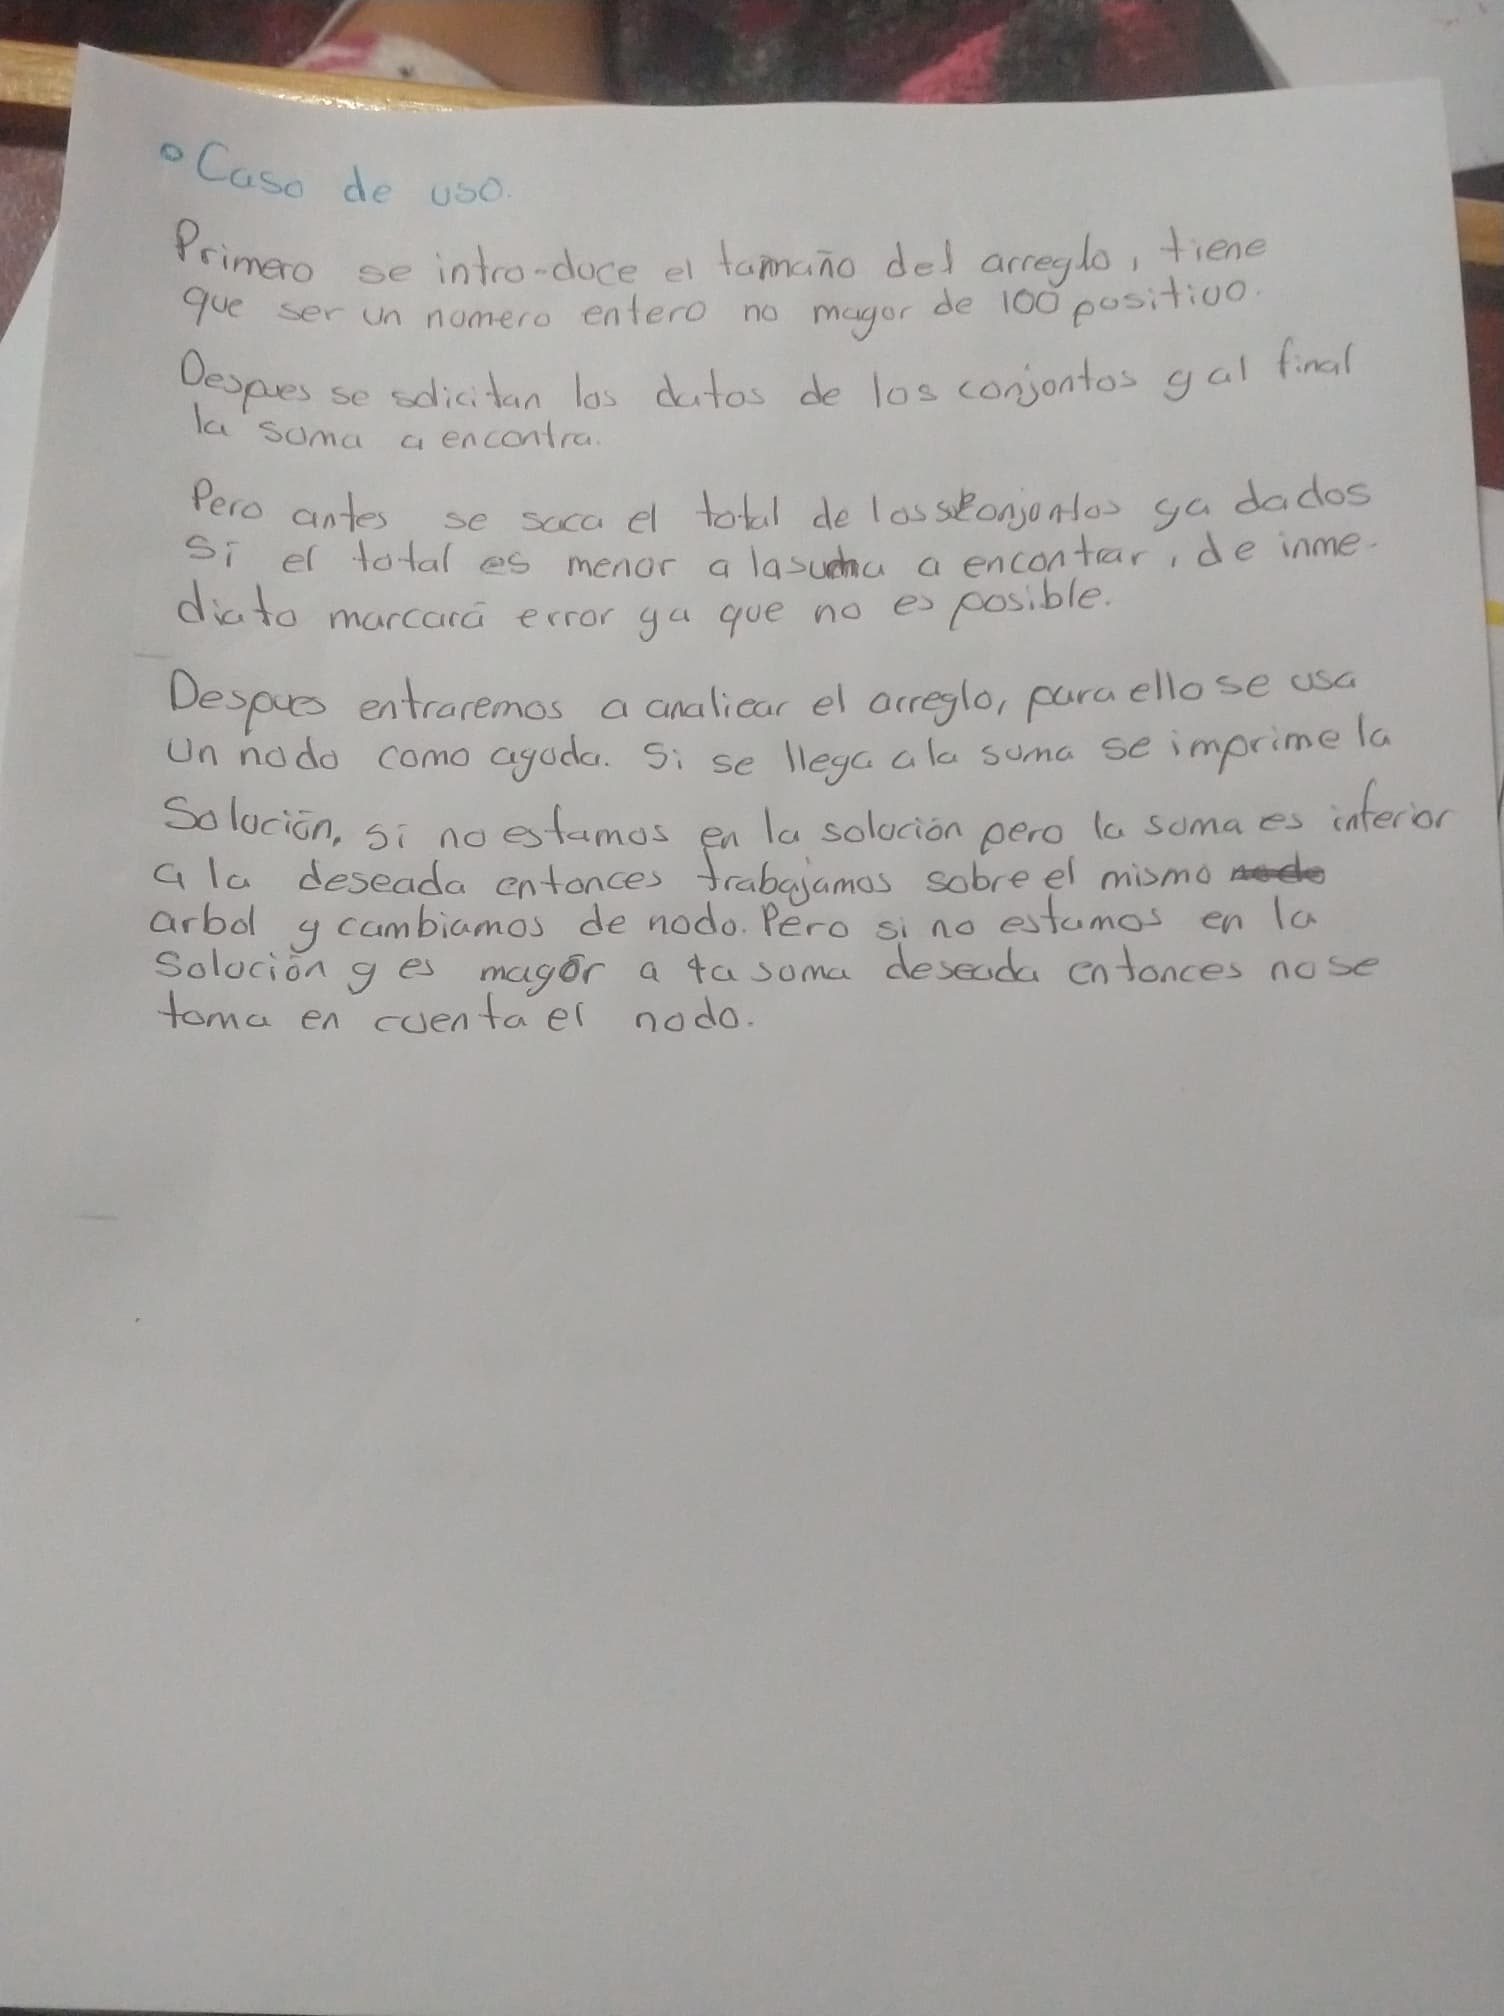 ° Caso de uso.
Primero se intro-duce el tamaño del arreglo, tiene
que ser un numero entero no mayor de 100 positivo.
Despues se solicitan los datos de los conjuntos y al final
la suma a encontra.
Pero antes se saca el total de los conjuntos ya dados
Si el total es menor a la suma a encontrar, de inme-
diato marcará error ya que no es posible.
Despues entraremos a analicar el arreglo, para ello se usa
un nodo como ayuda. Si se llega a la suma se imprime la
Solución, si no estamos en la solución pero la suma es inferior
a la deseada entonces trabajamos sobre el mismo nodo
arbol y cambiamos de nodo. Pero si no estamos en la
Solución y es mayor a la suma deseada entonces no se
toma en cuenta el nodo.